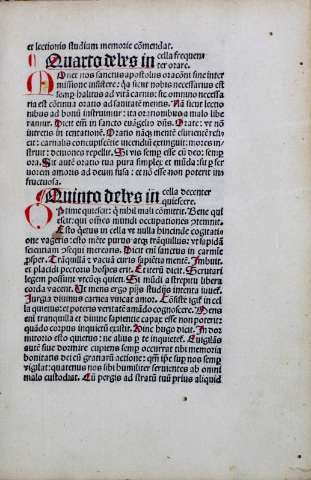 et lectionis studium memorie cōmendat.
Quarto debes in cella frequen
ter orare.
Monet nos sanctus apostolus oracōni sine inter
missione insistere: qꝛ sicut nobis necessarius est
semꝑ halitus ad vitā carnis: sic omnino necessa
ria est cōtinua oratio ad sanitatē mentis. Nā sicut lectio
nibus ad bonū instruimur: ita orationibus a malo libe
ramur. Dicit em̄ in sancto euāgelio dn̄s. Orate: vt nō
intretis in tentationē. Oratio nāqꝫ mentē esurientē refi
cit: carnalis concupiscētie incendiū extinguit: mores in
struit: demones repellit. Si vis semꝑ esse cū deo: semꝑ
ora. Sit autē oratio tua pura simplex et mūda: sit ꝑ fer
uorem amoris ad deum fusa: et nō esse non poterit in
fructuosa.
Quinto debes in cella decenter
quiescere.
Optime quiescit: q nihil mali cōmittit. Bene qui
escit: qui officij mundi occupationes ꝯtemnit.
Esto ꝗetus in cella vt nulla hincinde cogitatio
one vageris: esto mēte purus atqꝫ trāquillus: vt supida
scientiam ꝯsequi merearis. Dicit em̄ sanctus in carmīe
ꝓsper. Trāquillā ⁊ vacuā curis sapiētia mentē. Imbuit
et placidi pectoris hospes erit. Et iterū dicit. Scrutari
legem possunt vtcūqꝫ quieti. Et mūdi a strepitu libera
corda vacent. Ut mens ergo pijs studijs intenta iuuet.
Iurgia diuinus carnea vincat amor. Cōsiste igit̄ in cel
la quietus: et poteris veritatē amādo cognoscere. Mens
em̄ tranquilla et diuine sapientie capax esse non poterit:
quādo corpus inquietū exstitit. Hinc hugo dicit. In dor
mitorio esto quietus: ne alius ꝑ te inquietet̄. Euigilās
autē siue dormire cupiens semꝑ occurrat tibi memoria
bonitatis dei cū gratiarū actione: qm̄ ip̄e suꝑ nos semꝑ
vigilat: quatenus nos sibi humiliter seruientes ab omni
malo custodiat. Cū pergis ad stratū tuū prius aliquid